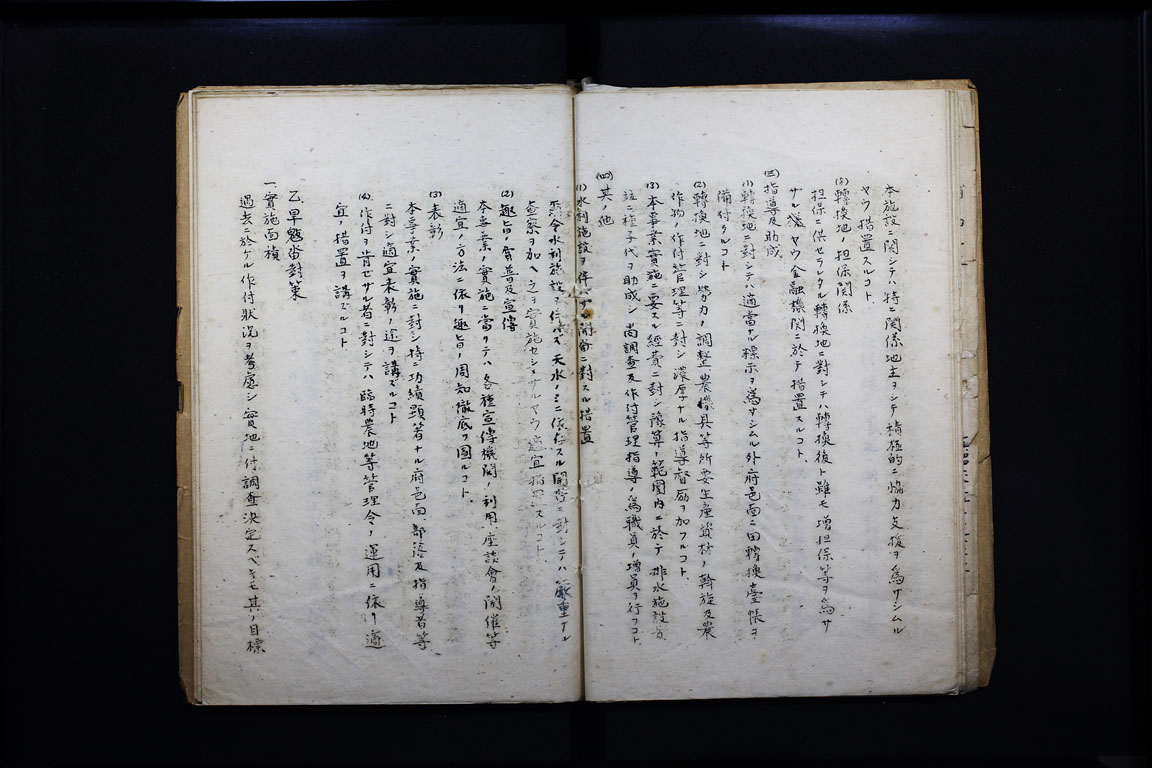 本施設ニ関シテハ特ニ関係地主ヲシテ積極的ニ協力支援ヲ為サシムル
ヤウ措置スルコト、
(8)轉換地ノ担保関係
担保ニ供セラレタル轉換地ニ對シテハ轉換後ト雖モ増担保等ヲ為サ
サル様ヤウ金融機関ニ於テ措置スルコト、
(三)指導及助成
(1)轉換地ニ對シテハ適當ナル標示ヲ為サシムル外府邑面ニ田轉換臺帳ヲ
備付クルコト
(2)轉換地ニ對シ勞力ノ調整農機具等所要生産資材ノ斡旋及農
作物ノ作付管理等ニ對シ濃厚ナル指導督励ヲ加フルコト、
(3)本事業實施ニ要スル経費ニ對シ豫算ノ範囲内ニ於テ排水施設費
並ニ種子代ヲ助成シ尚調査及作付管理指導ノ為職員ノ増員ヲ行フコト、
(四)其ノ他
(1)水利施設ヲ伴ハザル開畓ニ對スル措置
水利施設ヲ伴ハズ天水ノミニ依存スル開畓ニ對シテハ嚴重ナル
査察ヲ加ヘ之ヲ實施セシメザルヤウ適宜措置スルコト、
(2)趣旨ノ普及宣傳
本事業ノ實施ニ當リテハ各種宣傳機関ノ利用、座談會ノ開催等
適宜ノ方法ニ依リ趣旨ノ周知徹底ヲ圖ルコト、
(3)表彰
本事業ノ實施ニ對シ特ニ功績顕著ナル府邑面、部落及指導者等
ニ對シ適宜表彰ノ途ヲ講ズルコト
(4)作付ヲ肯ゼザル者ニ對シテハ臨時農地等管理令ノ運用ニ依リ適
宜ノ措置ヲ講ズルコト
乙、旱魃畓對策
一、實施面積
過去ニ於ケル作付状況ヲ考慮シ實地ニ付調査決定スベキモ其ノ目標